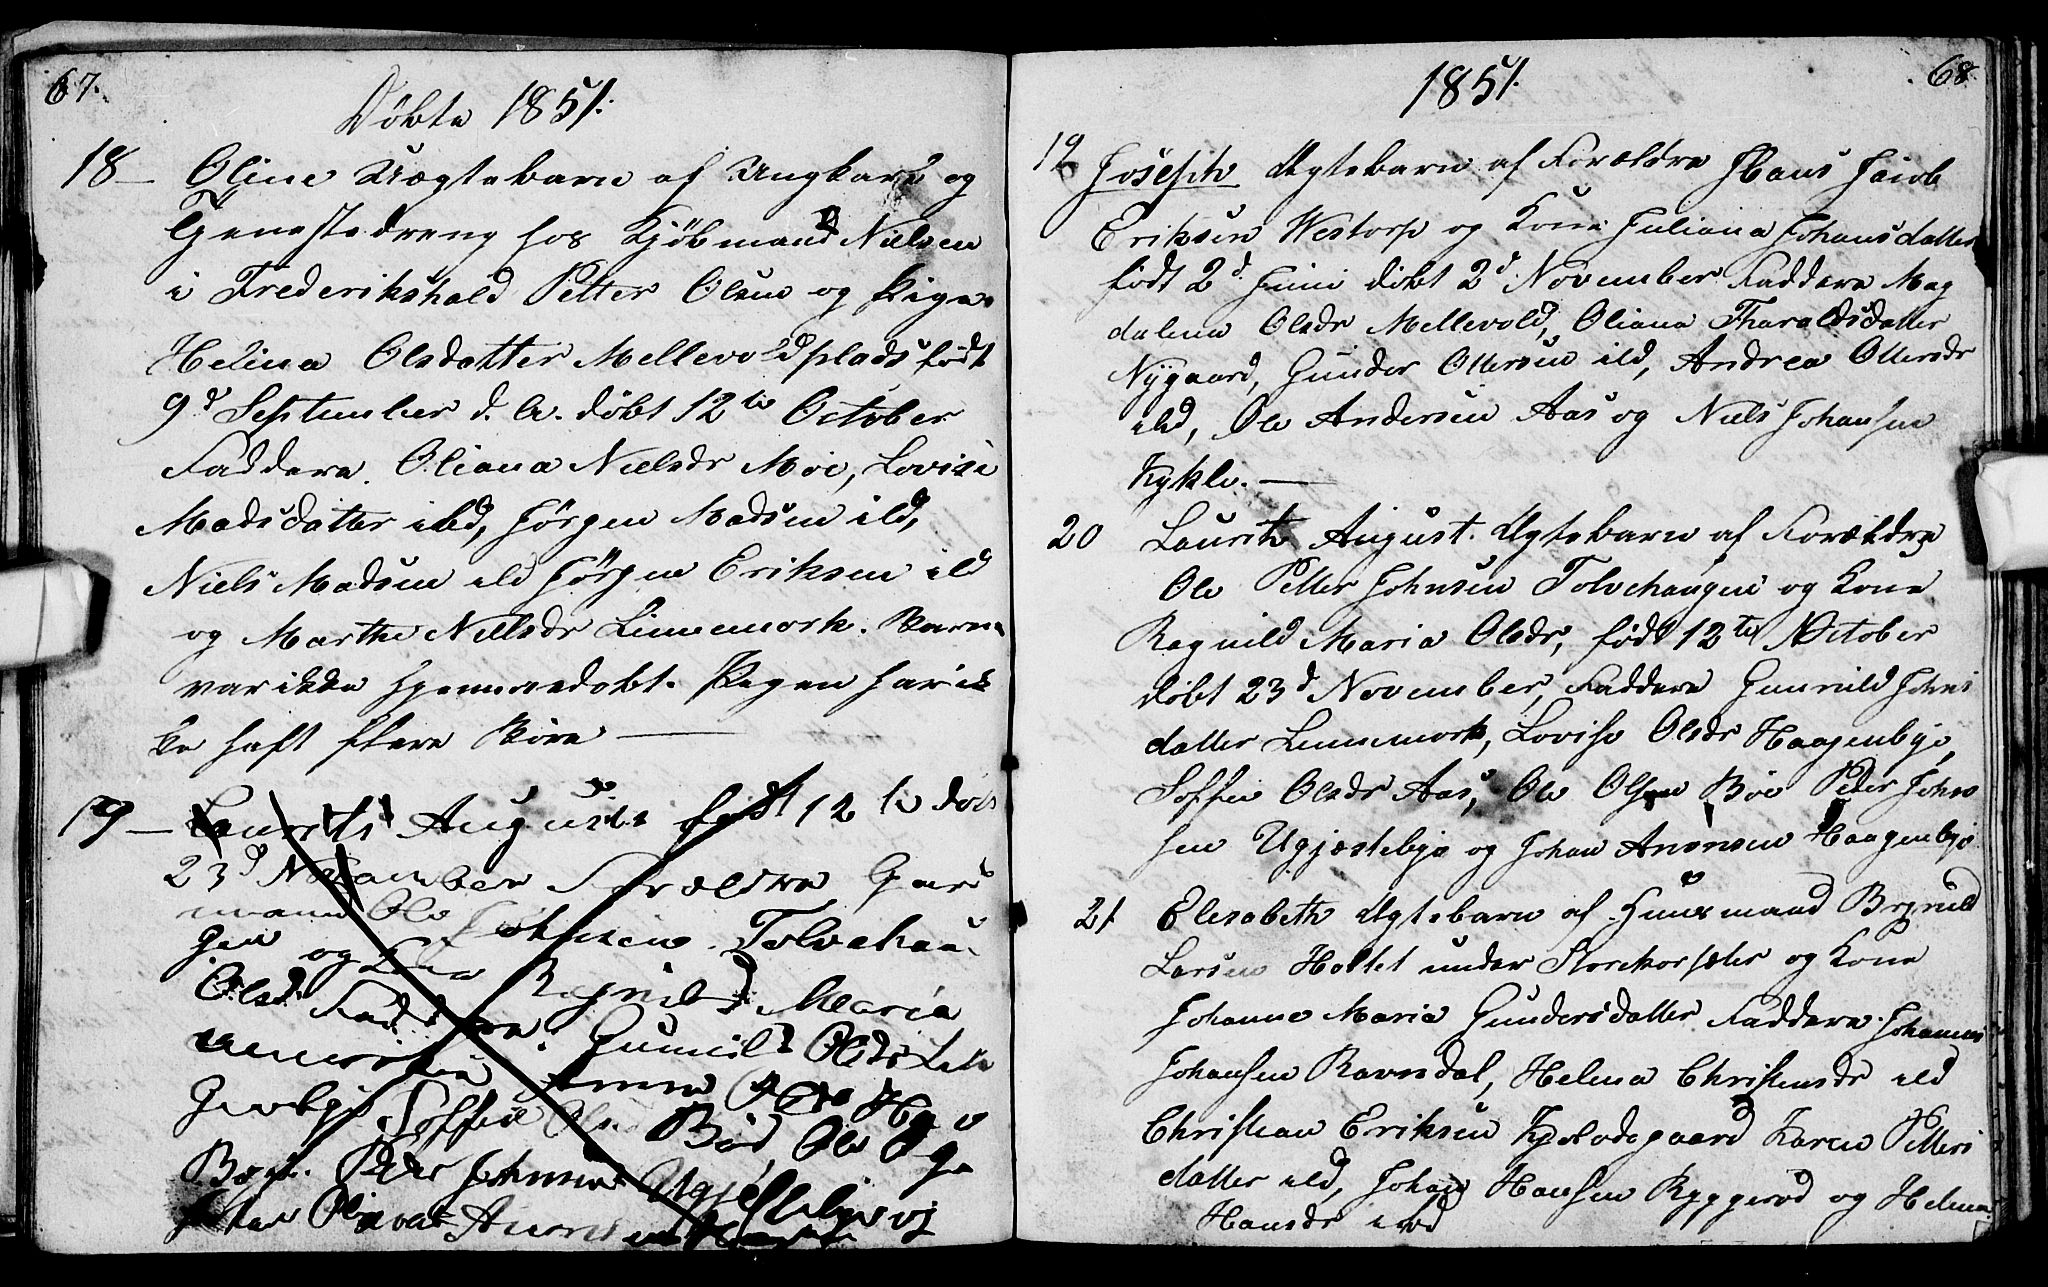 67.
Döbte 1851.
18 — Oline Uægtebarn af Ungkarl og
Tjenestedreng hos Kjöbmand Nielsen
i Frederikshald Petter Olsen og Pige
Helena Olsdatter Mellevoldplads født
9d September d. A. döbt 12te October
Faddere. Oliana Nielsdr Moe, Lovise
Madsdatter ibd, Jörgen Madsen ibd,
Niels Madsen ibd Jörgen Eriksen ibd
og Marthe Nielsdr Linnemork. Barne
var ikke hjemmedöbt. Pigen har ik
ke haft flere Börn —
19 — Laurits August født 12te döbt
23d November Forældre Gaard
mand Ole Johnsen Tolvehau
gen og Kone Ragnild Maria
Olsdr Faddere. Gunnild Olsdr Lin
Soffie Olsdr Böe, Ole
Peder Johnsen Ugjestebye og
1851.
68
19 Joseph Ægtebarn af Forældre Hans Jacob
Eriksen Westorp og Kone Juliana Johansdatter
født 2d Juni döbt 2d November Faddere Mag
dalena Olsdr Mellevold, Oliana Tharaldsdatter
Nygaard, Gunder Ottersen ibd, Andrea Ottersdr
ibd, Ole Andersen Aas og Niels Johansen
Kykle. —
20 Lauritz August. Ægtebarn af Forældre
Ole Petter Johnsen Tolvehaugen og Kone
Ragnild Maria Olsdr, født 12te October
döbt 23d November, Faddere Gunnild Johns
datter Linnemork, Lovise Olsdr Haagenbye,
Soffie Olsdr Aas, Ole Olsen Böe Peder John
sen Ugjestebye og Johan Anonsen Haagenbye
21 Elisabeth Ægtebarn af Huusmand Brynild
Larsen Holtet under Storekorsæter og Kone
Johanne Maria Gundersdatter Faddere. Johannes
Johansen Ravndal, Helena Christensdr ibd
Christian Eriksen Kjølodegaard Karen Petters
datter ibd, Johan Hansen Ryggeröd og Helena
Hansdr ibd